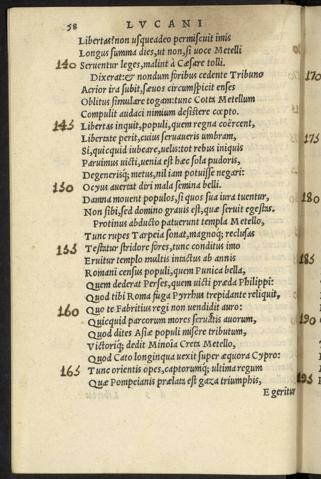 58 LVCANI
Libertas? non usqueadeo permiscuit imis
Longus summa dies, ut non, si uoce Metelli
140 Seruentur leges, malint à Cæsare tolli.
Dixerat: & nondum foribus cedente Tribuno
Acrior ira subit, sæuos circumspicit enses
Oblitus simulare togam: tunc Cotta Metellum
Compulit audaci nimium desistere cœpto.
145 Libertas inquit, populi, quem regna coërcent,
Libertate perit, cuius seruaueris umbram,
Si, quicquid iubeare, uelis: tot rebus iniquis
Paruimus uicti, uenia est hæc sola pudoris,
Degenerisq; metus, nil iam potuisse negari:
150 Ocyus auertat diri mala semina belli.
Damna mouent populos, si quos sua iura tuentur,
Non sibi, sed domino grauis est, quæ seruit egestas.
Protinus abducto patuerunt templa Metello,
Tunc rupes Tarpeia sonat, magnoq; reclusas
155 Testatur stridore fores, tunc conditus imo
Eruitur templo multis intactus ab annis
Romani census populi, quem Punica bella,
Quem dederat Perses, quem uicti præda Philippi:
Quod tibi Roma fuga Pyrrhus trepidante reliquit,
160 Quo te Fabritius regi non uendidit auro:
Quicquid parcorum mores seruastis auorum,
Quod dites Asiæ populi misere tributum,
Victoriq; dedit Minoïa Creta Metello,
Quod Cato longinqua uexit super æquora Cypro:
165 Tunc orientis opes, captorumq; ultima regum
Quæ Pompeianis prælata est gaza triumphis,
Egeritur
170
175
180
185
190
195